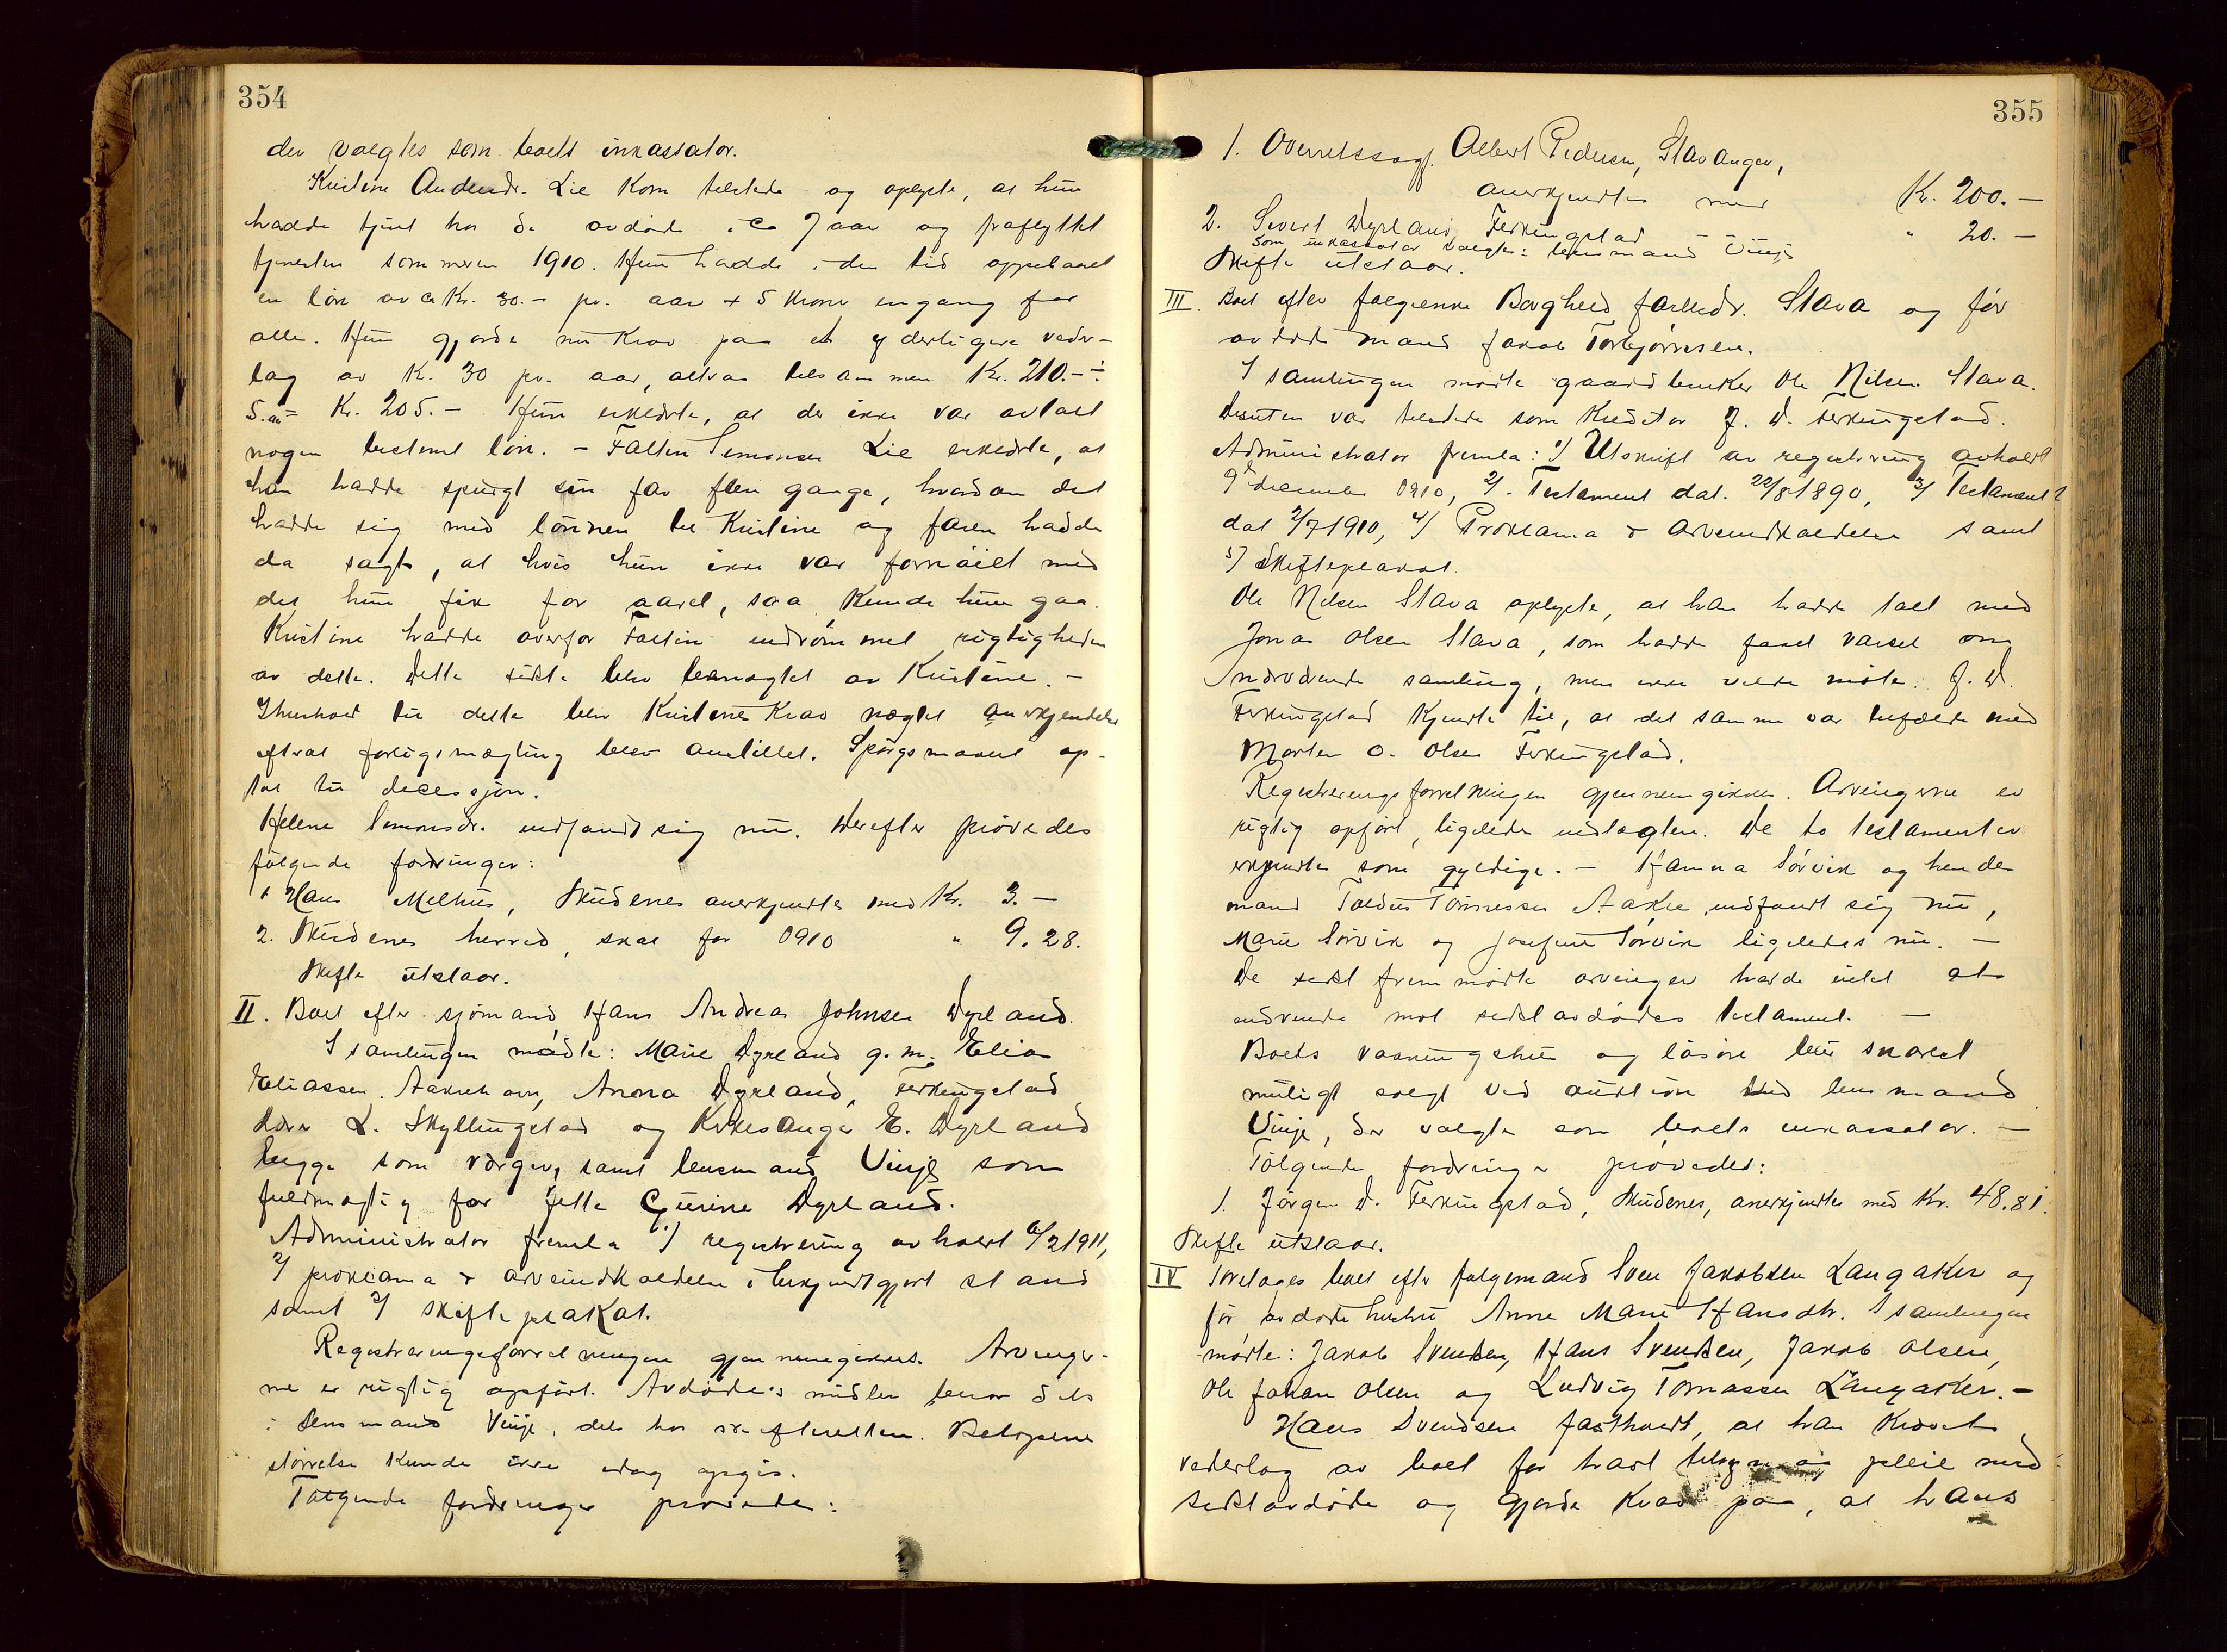 354
der valgtes som boets inkassator.
Kristine Andersdr. Lie kom tilstede og oplyste, at hun
hadde tjent hos de avdöde i ca 7 aar og fraflyttet
tjenesten sommeren 1910. Hun hadde i den tid oppebaaret
en lön av ca Kr. 30.- pr. aar + 5 kroner engang for
alle. Hun gjorde nu krav paa et yderligere veder-
lag av Kr. 30 pr. aar, altsaa tilsammen Kr. 210.- ÷
5. = Kr. 205.- Hun erklærte, at der ikke var avtalt
nogen bestemt lön. - Faltin Simonsen Lie erklærte, at
han hadde spurgt sin far flere gange, hvordan det
hadde sig med lönnen til Kristine og faren hadde
da sagt, at hvis hun ikke var fornöiet med
det hun fik for aaret, saa kunde hun gaa.
Kristine hadde overfor Faltin indrömmet rigtigheden
av dette. Dette sidste blev benægtet av Kristine. -
I henhold til dette blev Kristines krav nægtet anerkjendelse
efterat forligsmægling blev anstillet. Spörgsmaalet op-
tat til decessjon.
Helene Simonsdr. indfandt sig nu. Derefter prövedes
fölgende fordringer:
1 Hans Melhus, Skudenes anerkjendtes med Kr. 3.-
2. Skudenes herred, skat for 1910 " 9.28.
Skifte utstaar.
II. Boet efter sjömand Hans Andreas Johnsen Dyrland.
I samlingen mödte: Marie Dyrland g. m. Elias
Eliassen Aakrehavn, Anna Dyrland, Ferkingstad
lærer L. Skyllingstad og kirkesanger E. Dyrland
begge som verger, samt lensmand Vinje som
fuldmægtig for Jette Gurine Dyrland.
Administrator fremla 1/ registrering avholdt 6/2 1911,
2/ proklama & arveindkaldelse i bekjendtgjort stand
samt 3/ skifteplakat.
Registreringsforretningen gjennemgikkes. Arvinger-
ne er rigtig opfört. Avdödes midler beror dels
i lensmand Vinje, dels hos skifteretten. Belöpenes
störrelse kunde ikke idag opgis.
Fölgende fordringer prövedes:
355
1. Overretssagf. Albert Pedersen, Stavanger,
anerkjendtes med Kr. 200.-
2. Sivert Dyrland, Ferkingstad " 20.-
Som inkassator valgtes: lensmand Vinje
Skifte utstaar.
III. Boet efter folgeenke Borghild Jarlsdr. Stava og för
avdöde mand Jakob Torbjörnsen.
I samlingen mödte gaardbruker Ole Nilsen Stava.
Desuten var tilstede som kreditor J. D. Ferkingstad.
Administrator fremla: 1/ Utskrift av registrering avholdt
9de december 1910, 2/ Testament dat. 22/8 1890, 3/ Testament
dat 2/7 1910, 4/ Proklama & arveindkaldelse samt
5/ Skifteplakat.
Ole Nilsen Stava oplyste, at han hadde talt med
Jonas Olsen Stava, som hadde faaet varsel om
nærværende samling, men ikke vilde möte. J. D.
Ferkingstad kjendte til, at det samme var tilfælde med
Morten O. Olsen Ferkingstad.
Registreringsforretningen gjennemgikkes. Arvingerne er
rigtig opfört, ligeledes utlægten. De to testamenter
erkjendtes som gyldige. - Hanna Sörvik og hendes
mand Tönnessen Aakre indfandt sig nu,
Marie Sörvik og Josefine Sörvik ligeledes nu. -
De sidst fremmödte arvinger hadde intet at
indvende mot sidstavdödes testament. -
Boets vaaningshus og lösöre blir snarest
muligt solgt ved auktion ved lensmand
Vinje, der valgtes som boets inkassator. -
Fölgende fordringer prövedes:
1. Jörgen D. Ferkingstad, Skudenes, anerkjendtes med Kr. 48.81.
Skifte utstaar.
IV Foretoges boet efter folgemand Sven Jakobsen Langaker og
för avdöde hustru Anne Marie Hansdtr. I samlingen
mödte: Jakob Svendsen, Hans Svendsen, Jakob Olsen,
Ole Johan Olsen og Ludvig Tomassen Langaker. -
Hans Svendsen fastholdt, at han krævet
vederlag av boet for havt tilsyn og pleie med
sidstavdöde og gjorde krav paa, at hans